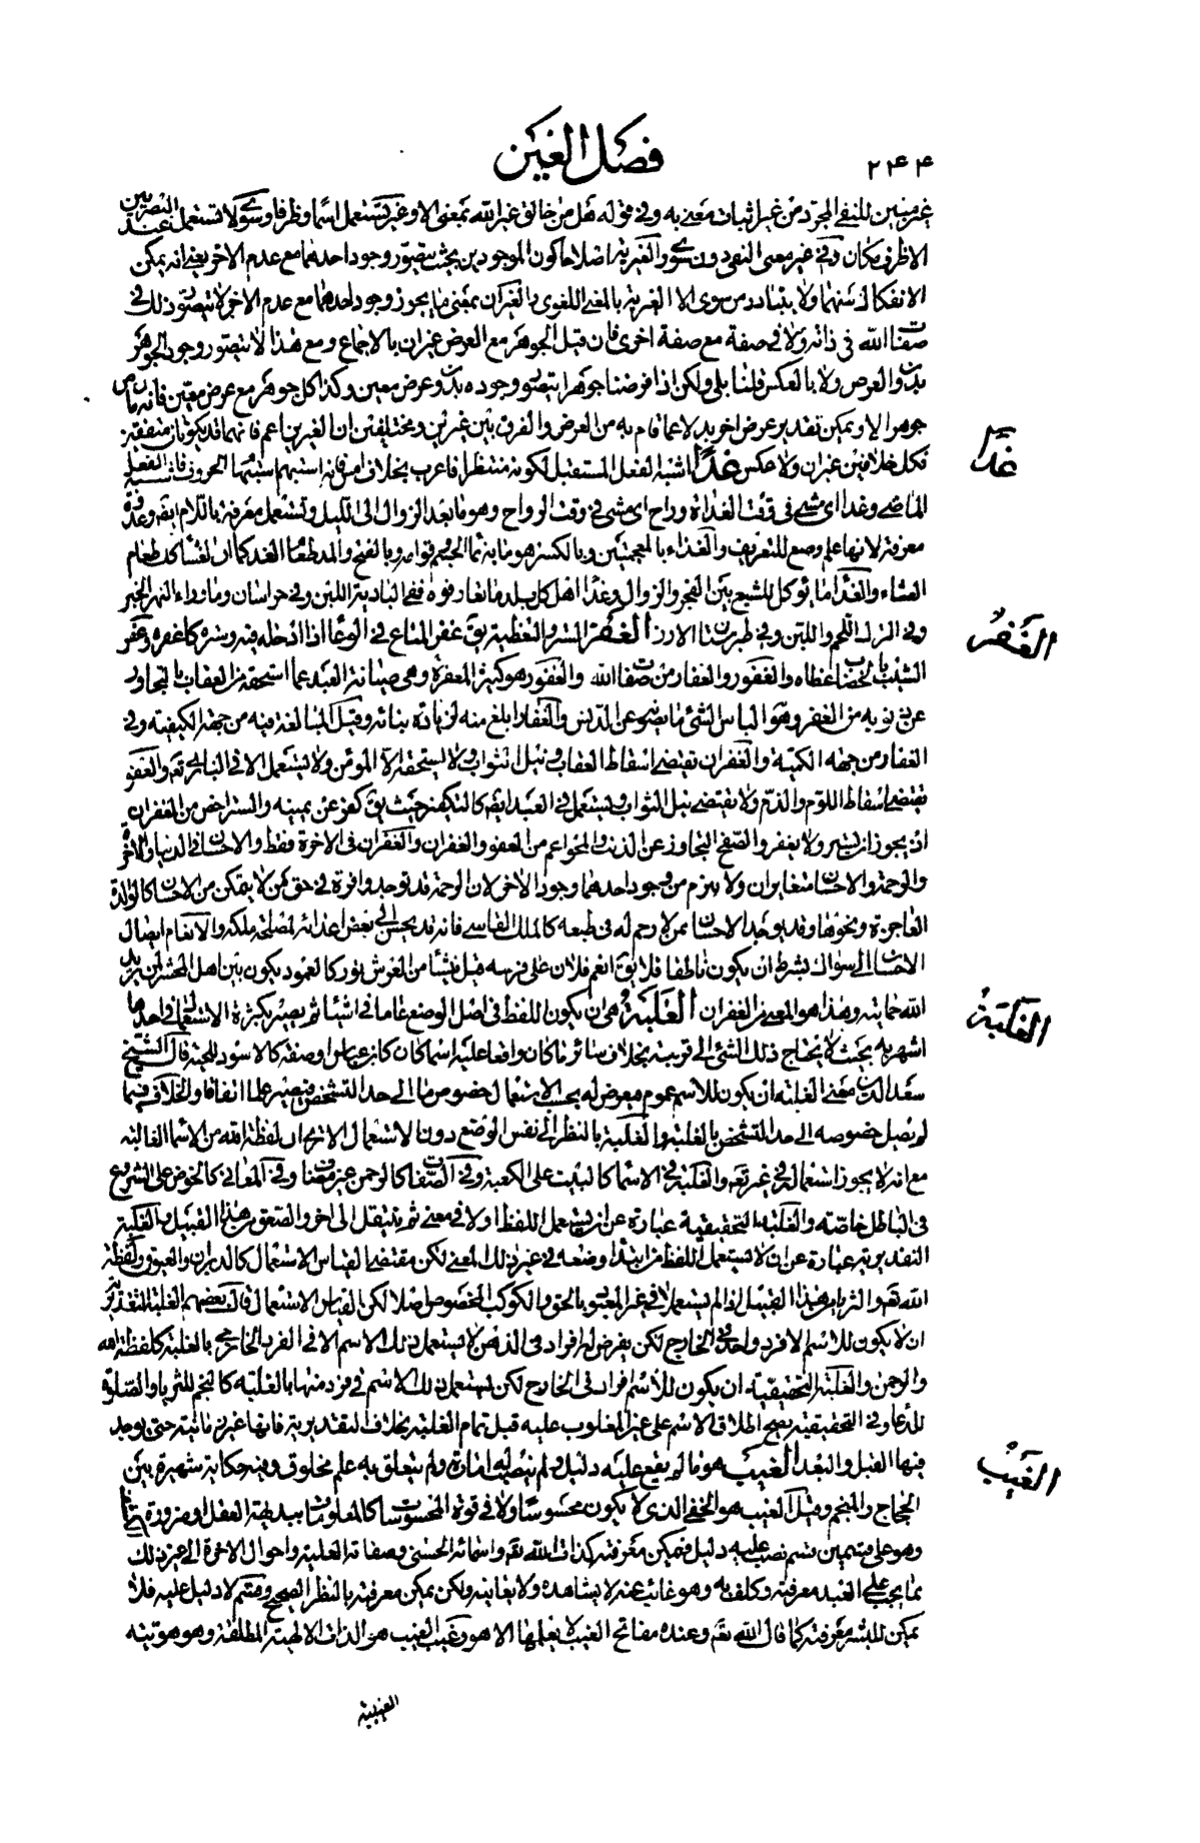 ٢٤٤
فصل الغين
غير مبنيين للنفي المجرد من غير اثبات معنى به وفي قوله هل من خالق غير الله بمعنى الا وغير تستعمل اسما وظرفا وسوى لا تستعمل عند البصريين
الا ظرف مكان وفي غير معنى النفي دون سوى والغيرية اصلا كون الموجودين بحيث يتصور وجود احدهما مع عدم الاخر يعني انه يمكن
الانفكاك بينهما ولا يتبادر من سوى الا الغيرية بالمعنى اللغوي والغيران بمعنى ما يجوز وجود احدهما مع عدم الاخر لا يتصور ذلك في
صفات الله في ذاته ولا في صفة مع صفة اخرى فان قيل الجوهر مع العرض غيران بالاجماع ومع هذا لا يتصور وجود الجوهر
بدون العرض ولا بالعكس قلنا بلى ولكن اذا فرضنا جوهرا يتصور وجوده بدون عرض معين وكذا كل جوهر مع عرض معين فانه ما من
جوهر الا ويمكن تقدير عرض اخر بدلا عما قام به من العرض والفرق بين غيرين ومختلفين ان الغيرين اعم فانهما قد يكونان متفقين
فكل خلافين غيران ولا عكس غدا اشبه الفعل المستقبل لكونه منتظرا فاعرب بخلاف امس فانه استبهم استبهام الحروف فاشبه الفعل
الماضي وغدا اي مشى في وقت الغداة وراح اي مشى في وقت الرواح وهو ما بعد الزوال الى الليل وتستعمل معرفة باللام ايضا وغدوة
معرفة لانها علم وضع للتعريف والغذاء بالمعجمتين وبالكسر هو ما به نماء الجسم وقوامه وبالفتح والمد طعام الغد كما ان العشاء كذلك طعام
العشاء والغداء ما يؤكل للشبع بين الفجر والزوال وغداء اهل كل بلد ما تعارفوه ففي البادية اللبن وفي خراسان وما وراء النهر الخبز
وفي الترك اللحم واللبن وفي طبرستان الارز الغفر الستر والتغطية يق غفر المتاع في الوعاء اذا ادخله فيه وستره كاغفره وغفر
الشيب بالخضاب غطاه والغفور والغفار من صفات الله والغفور هو كثير المغفرة وهي صيانة العبد عما استحقه من العقاب بالتجاوز
عن ذنوبه من الغفر وهو الباس الشئ ما يصونه عن الدنس والغفار ابلغ منه لزيادة بنائه وقيل المبالغة فيه من جهة الكيفية وفي
الغفار من جهة الكمية والغفران يقتضي اسقاط العقاب ونيل الثواب ولا يستحقه الا المؤمن ولا يستعمل الا في الباري تعم والعفو
يقتضي اسقاط اللوم والذم ولا يقتضي نيل الثواب ويستعمل في العبد ايضا كالتكفير حيث يق كفر عن يمينه والستر اخص من الغفران
اذ يجوز ان يستر ولا يغفر والصفح التجاوز عن الذنب والمحو اعم من العفو والغفران والغفران في الاخرة فقط والاحسان في الدنيا والاخرة
والرحمة والاحسان متغايران ولا يلزم من وجود احدهما وجود الاخر لان الرحمة قد توجد وافرة في حق من لا يتمكن من الاحسان كالوالدة
العاجزة ونحوها وقد يوجد الاحسان ممن لا رحم له في طبعه كالملك القاسي فانه قد يحسن الى بعض اعدائه لمصلحة ملكه والانعام ايصال
الاحسان الى سواك بشرط ان يكون ناطقا فلا يق انعم فلان على فرسه
الله حمايته وهذا هو المعنى من الغفران الغلبة هي ان يكون للفظ في اصل الوضع عاما في اشياء ثم يصير بكثرة الاستعمال في احدها
اشهر به بحيث لا يحتاج ذلك الشئ الى قرينة بخلاف سائر ما كان واقعا عليه اسما كان كابن عباس او صفة كالاسود للحية قال الشيخ
سعد الدين معنى الغلبة ان يكون للاسم عموم يعرض له بحسب الاستعمال خصوص ما الى حد التشخص فيصير علما اتفاقا والخلاف فيما
لم يصل خصوصه الى حد التشخص بالغلبة والغلبة بالنظر الى نفس الوضع دون الاستعمال الا ترى ان لفظة الله من الاسماء الغالبة
مع انه لا يجوز استعماله في غيره تعم والغلبة في الاسماء كالبيت على الكعبة وفي الصفات كالرحمن غير مضاف وفي المعاني كالخوض على الشروع
في الباطل خاصة والغلبة التحقيقية عبارة عن ان يستعمل اللفظ اولا في معنى ثم ينتقل الى اخر والصعق من هذا القبيل والغلبة
التقديرية عبارة عن ان لا يستعمل اللفظ من ابتداء وضعه في غير ذلك المعنى لكن مقتضى القياس الاستعمال كالدبران والعيوق ولفظة
الله تعم والثريا من هذا القبيل اذ لم يستعملا في غير المعبود بالحق والكوكب المخصوص اصلا لكن القياس الاستعمال قال بعضهم الغلبة التقديرية
ان لا يكون للاسم الا فرد واحد في الخارج لكن يفرض له افراد في الذهن لا يستعمل ذلك الاسم الا في الفرد الخارجي بالغلبة كلفظة الله
والرحمن والغلبة التحقيقية ان يكون للاسم افراد في الخارج لكن يستعمل ذلك الاسم في فرد منها بالغلبة كالنجم للثريا والصلوة
للدعاء وفي التحقيقية يصح اطلاق الاسم على غير المغلوب عليه قبل تمام الغلبة بخلاف التقديرية فانها غير زمانية حتى يوجد
فيها القبل والبعد الغيب هو ما لم يقع عليه دليل ولم ينصب له امارة ولم يتعلق به علم مخلوق وفيه حكاية شهيرة بين
الحجاج والمنجم وقيل الغيب هو الخفي الذي لا يكون محسوسا ولا في قوة المحسوسات كالمعلومات ببديهة العقل او ضرورة
وهو على قسمين قسم نصب عليه دليل فيمكن معرفته كذات الله تعم واسمائه الحسنى وصفاته العلية واحوال الاخرة الى غير ذلك
مما يجب على العبد معرفته وكلف به وهو غائب عنه لا يشاهده ولا يعاينه ولكن يمكن معرفته بالنظر الصحيح وقسم لا دليل عليه فلا
يمكن للبشر معرفته كما قال الله تعم وعنده مفاتح الغيب لا يعلمها الا هو وغيب الغيب هو الذات الالهية المطلقة وهو هويته
الغيبية
غدا
الغفر
الغلبة
الغيب